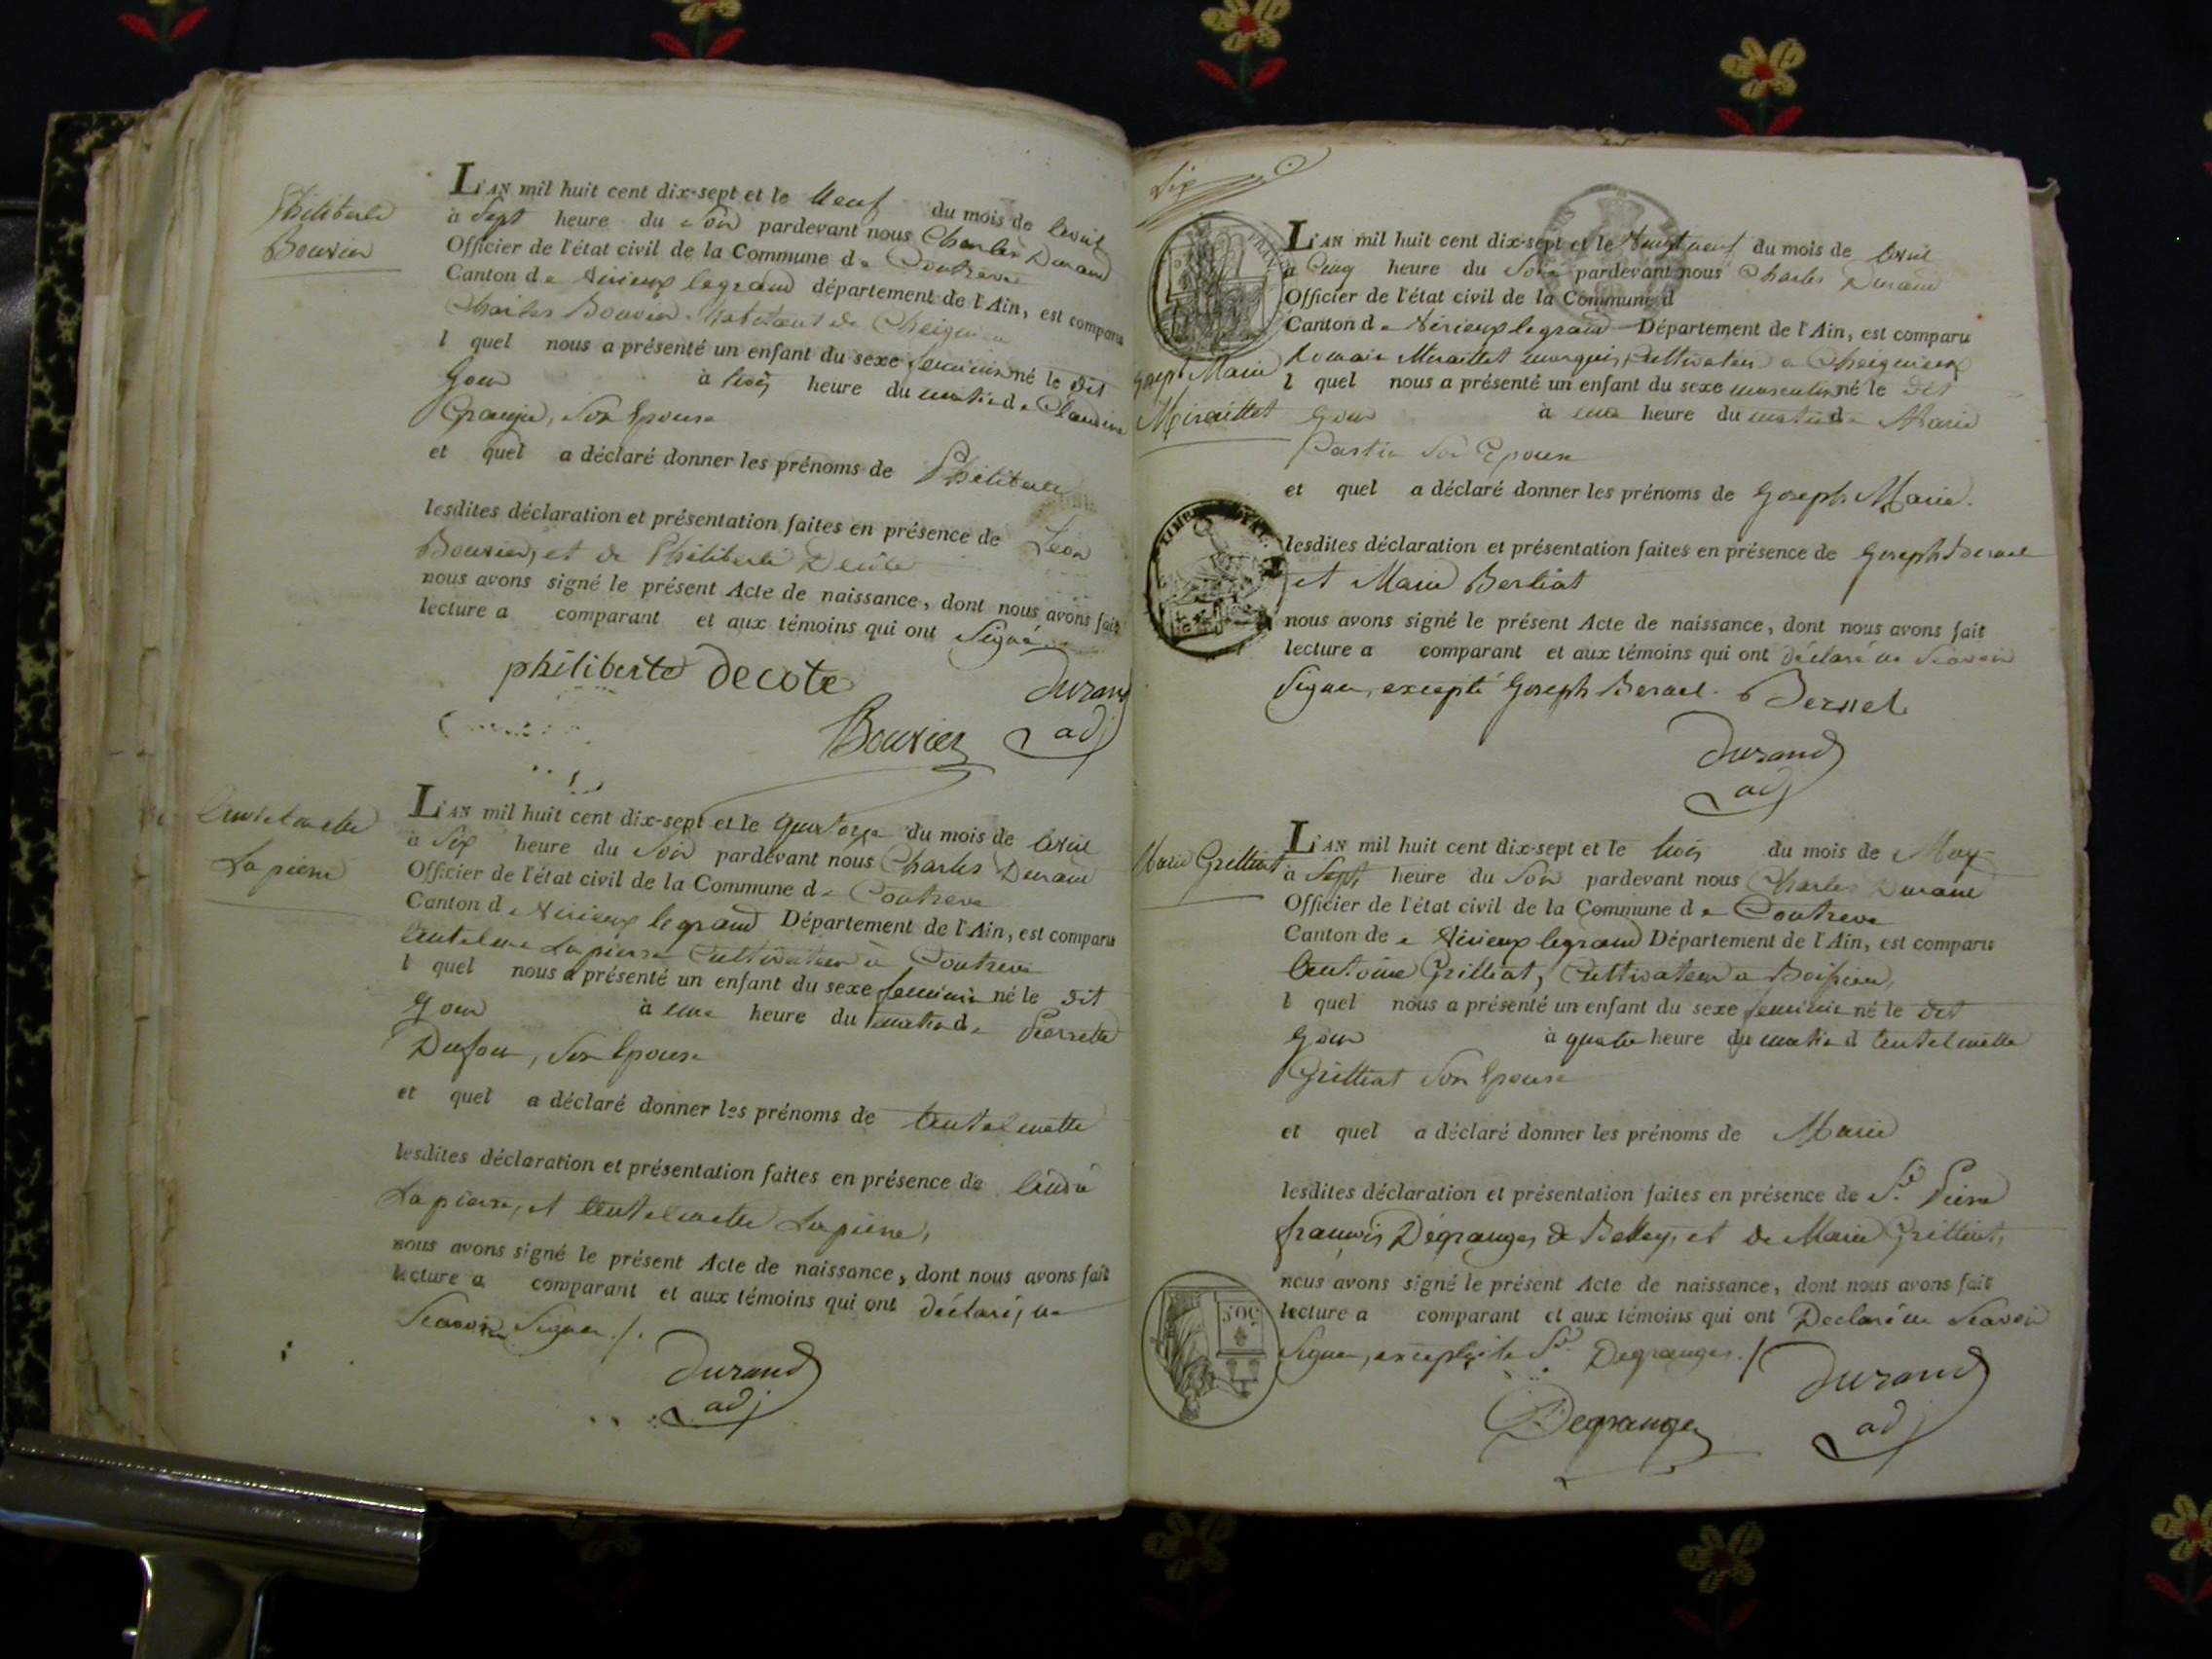 Philiberte
Bouvier
L'AN mil huit cent dix-sept et le Neuf du mois de avril
à Sept heure du Soir pardevant nous Charles Durand
Officier de l'état civil de la Commune de Contreve
Canton de Virieux legrand département de l'Ain, est comparu
Charles Bouvier habitant de Cheignieu
l quel nous a présenté un enfant du sexe feminin né le dit
Jour à trois heure du matin de Claudine
Grange, Son Epouse
et quel a déclaré donner les prénoms de Philiberte
lesdites déclaration et présentation faites en présence de Leon
Bouvier, et de Philiberte Decôte
nous avons signé le présent Acte de naissance, dont nous avons fait
lecture a comparant et aux témoins qui ont Signé.
philiberte Decote
Durand
Bouvier adj
Antelmette
Lapierre
L'AN mil huit cent dix-sept et le Quatorze du mois de avril
à Six heure du Soir pardevant nous Charles Durand
Officier de l'état civil de la Commune de Contreve
Canton de Virieux legrand Département de l'Ain, est comparu
Antelme Lapierre Cultivateur à Contreve
l quel nous a présenté un enfant du sexe feminin né le dit
Jour à une heure du matin de Pierrette
Dufour, Son Epouse
et quel a déclaré donner les prénoms de Antelmette
lesdites déclaration et présentation faites en présence de André
Lapierre, et Antelmette Lapierre,
nous avons signé le présent Acte de naissance, dont nous avons fait
lecture a comparant et aux témoins qui ont déclaré, ne
Scavoir Signer ./.
Durand
adj
Six
L'AN mil huit cent dix-sept et le Vingt neuf du mois de avril
à Cinq heure du Soir pardevant nous Charles Durand
Officier de l'état civil de la Commune d
Canton de Virieux legrand Département de l'Ain, est comparu
Joseph Marie
Miraillet
Romain Miraillet marquis, Cultivateur a Cheignieux
l quel nous a présenté un enfant du sexe masculin né le dit
Jour à une heure du matin de Marie
Son Epouse
et quel a déclaré donner les prénoms de Joseph Marie.
lesdites déclaration et présentation faites en présence de Joseph Bernel
et Marie Bertiat
nous avons signé le présent Acte de naissance, dont nous avons fait
lecture a comparant et aux témoins qui ont déclaré ne Scavoir
Signer, excepté Joseph Bernel. Bernel
Durand
adj
Marie Grilliat
L'AN mil huit cent dix-sept et le trois du mois de May
à Sept heure du Soir pardevant nous Charles Durand
Officier de l'état civil de la Commune de Contreve
Canton de Virieux legrand Département de l'Ain, est comparu
Antoine Grilliat, Cultivateur a Boissieu,
l quel nous a présenté un enfant du sexe feminin né le dit
Jour à quatre heure du matin d Antelmette
Grilliat Son Epouse
et quel a déclaré donner les prénoms de Marie
lesdites déclaration et présentation faites en présence de Sr. Pierre
françois Dégranges de Belley, et de Marie Grilliat,
nous avons signé le présent Acte de naissance, dont nous avons fait
lecture a comparant et aux témoins qui ont Declaré ne Scavoir
Signer, excepté le Sr. Degranges ./.
Durand
Degranges adj
50C